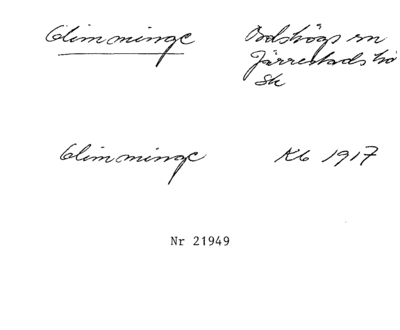 Glimminge Bolshögs sn
Järrestads hd
Sk
Glimminge Kb 1917
Nr 21949